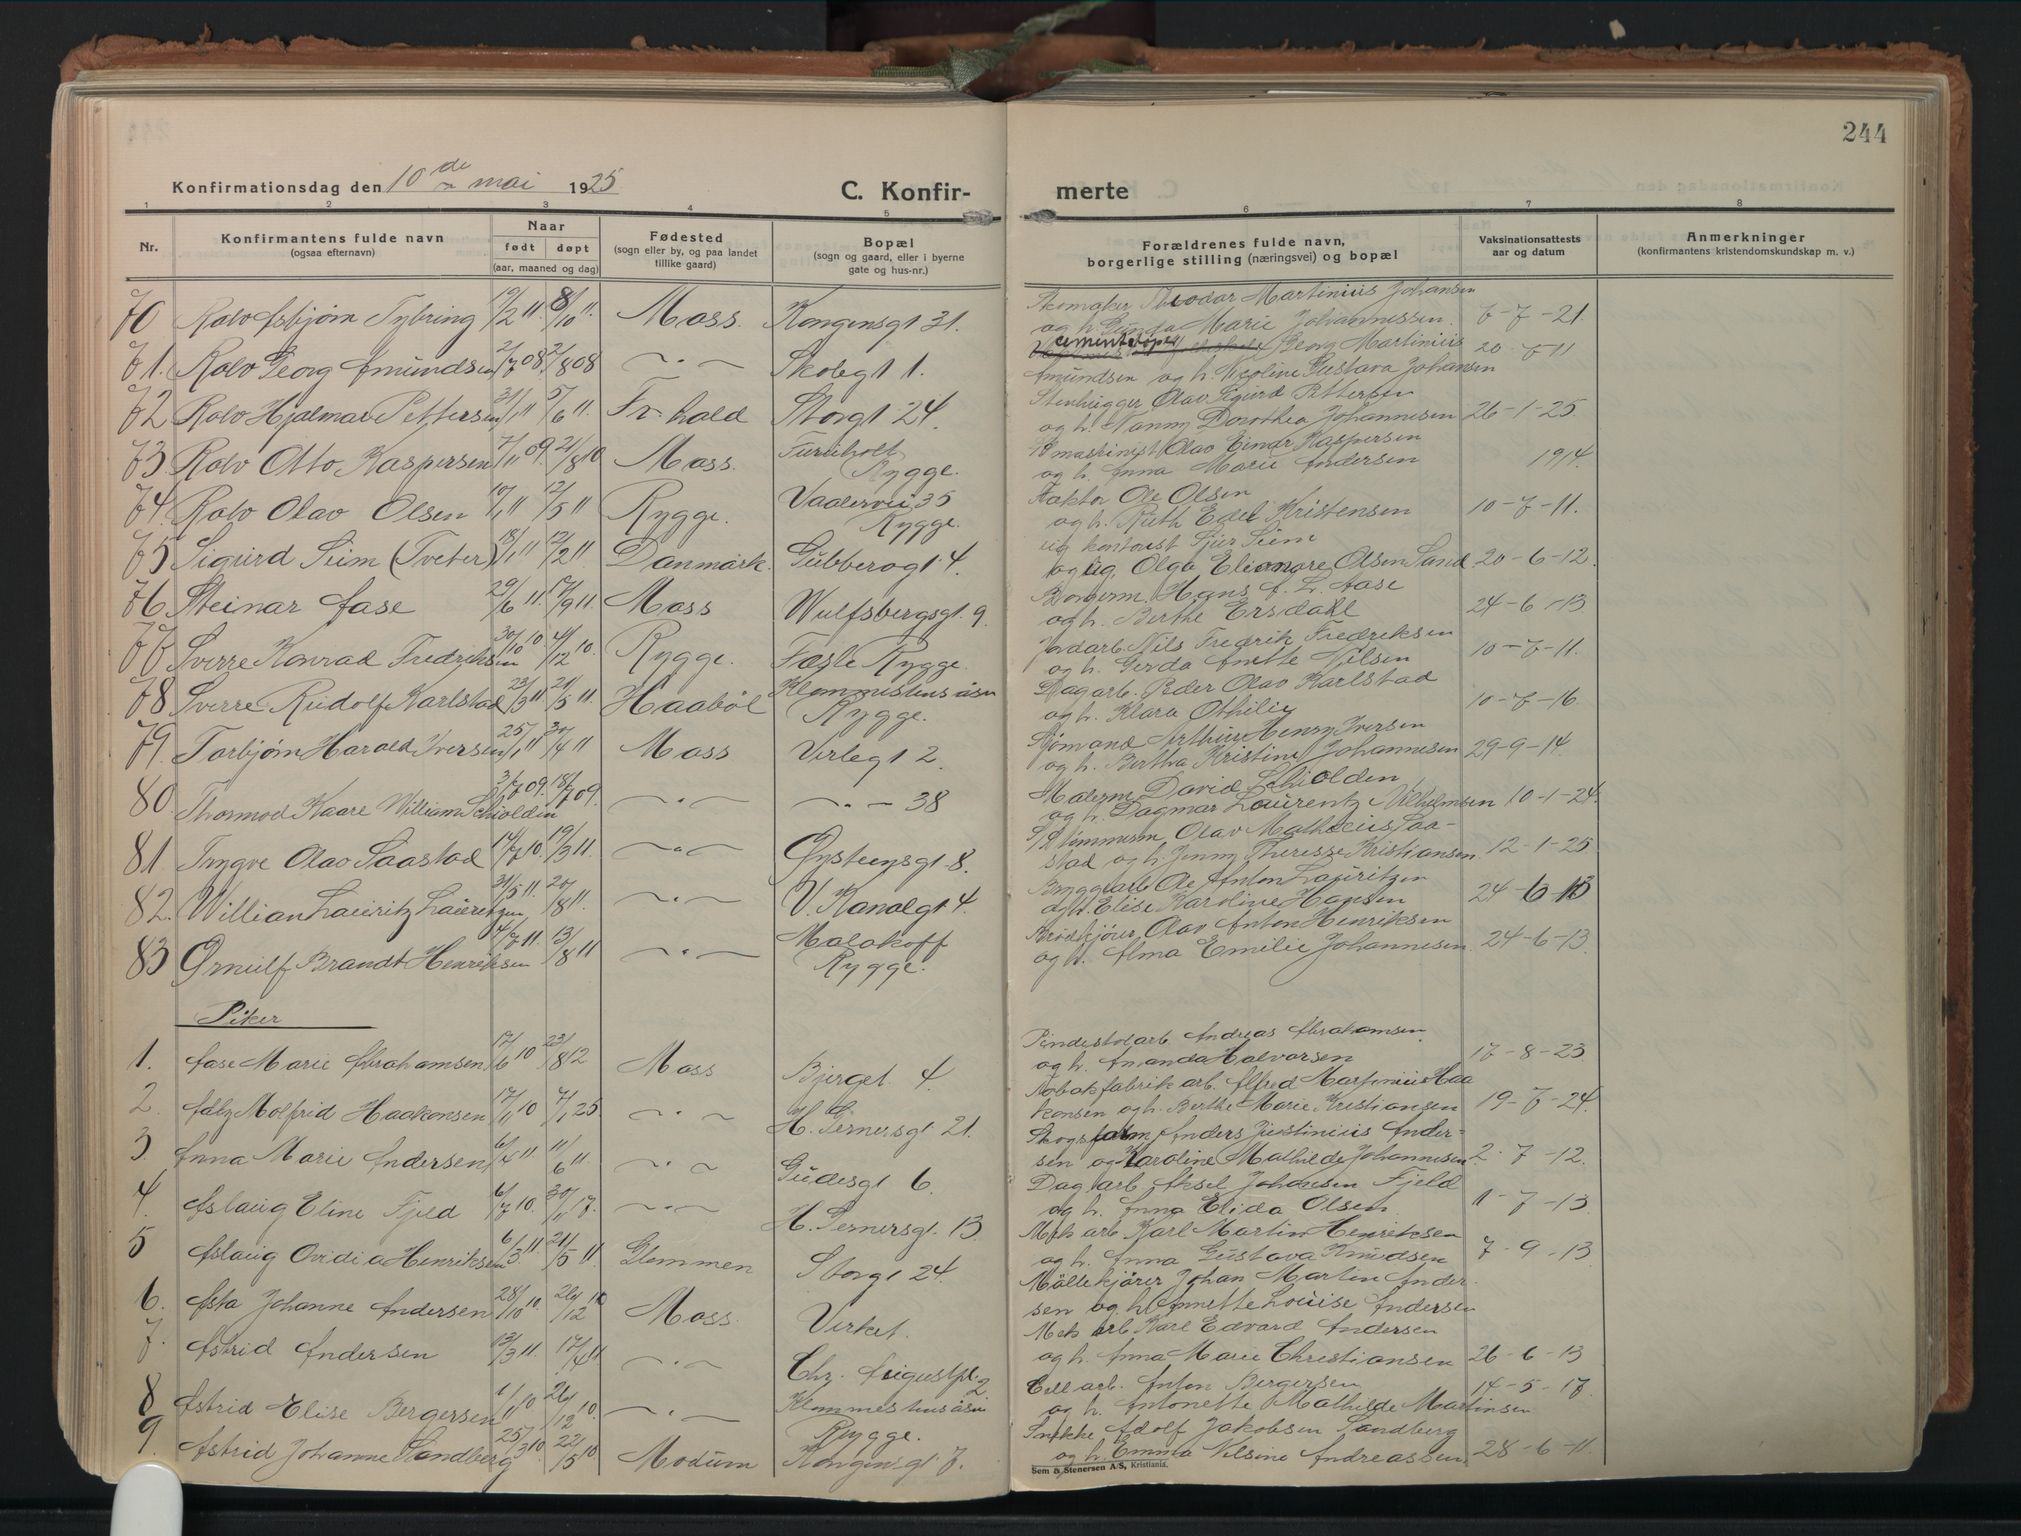 244
Konfirmationsdag den 10de mai 1925
C. Konfir- merte
1 2 3 4 5 6 7 8
Nr.
Konfirmantens fulde navn
(ogsaa efternavn)
Naar
født døpt
(aar, maaned og dag)
Fødested
(sogn eller by, og paa landet
tillike gaard)
Bopæl
(sogn og gaard, eller i byerne
gate og hus-nr.)
Forældrenes fulde navn,
borgerlige stilling (næringsvei) og bopæl
Vaksinationsattests
aar og datum
Anmerkninger
(konfirmantens kristendomskundskap m. v.)
70 Rolv Asbjørn Tybring 19/2 11 8/10 11. Moss. Kongensgt 31. Skomaker Theodor Martinius Johansen
og h. Gunda Marie Johannessen. 7-7-21
71. Rolv Georg Amundsen 2/7 08. 2/8 08 -"- Skolegt 1. Georg Martinius 20 7 11
Amundsen og h. Nicoline Gustava Johansen
72 Rolv Hjalmar Pettersen 31/1 11 5/6 11. Fr. hald Storgt 24. Stenhugger Olav Sigurd Pettersen
og h. Nanny Dorothea Johannesen 26-1-25
73 Rolv Otto Kaspersen 7/11 09. 21/8 10 Moss. Furuholt
Rygge. maskinist Olav Einar Kaspersen
og h. Anna Marie Andersen 1914.
74. Rolv Olav Olsen 10/1 11 12/5 11 Rygge. Vaalervei 35
Rygge. Faktor Ole Olsen
og h. Ruth Edel Kristensen 10-7-11.
75 Sigurd Siim (Tveter) 18/1 11 12/2 11 Danmark. Gubberogt 4. ug kontorist Sjur Siim
og ug. Olga Elionore Olsen Sand 20-6-12
76 Steinar Aase 29/6 11. 17/9 11. Moss Wulfsbergsgt. 9. Hans A. L. Aase
og h. Berthe Ersdahl 24-6-13
77 Sverre Konrad Fredriksen 30/10 10 4/12 10. Rygge. Fæste Rygge. Jordarb. Nils Fredrik Fredriksen
og h. Gerda Anette Nilsen 10-7-11.
78 Sverre Rudolf Karlstad 23/3 11 21/5 11 Haabøl Klommestensåsen
Rygge. Dagarb. Peder Olav Karlstad
og h. Klara Othilie 10-7-16
79. Torbjørn Harald Iversen 25/1 11 30/4 11 Moss Verlegt 2. Sjømand Arthur Henry Iversen
og h. Bertha Kristine Johannesen 29-9-14.
80. Thormod Kaare William Schiolden 3/7 09. 18/7 09. -"- -"- 38 Malerm. David Schiolden
og h. Dagmar Laurentz Vilhelmsen 10-1-24.
81 Trygve Olav Saastad 14/7 10. 19/3 11. -"- Øysteinsgt. 8. Tømmerm. Olav Mathæus Saa-
stad og h. Jenny Theresse Kristiansen 12-1-25
82. Willian Lauritz Lauritzen 31/5 11 20/8 11. -"- V. Kanalgt 4. Bryggarb Ole Anton Lauritzen
og h. Elise Karoline Hansen 24-6-13
83 Ørnulf Brandt Henriksen 4/7 11. 13/8 11 -"- Malakoff
Rygge. Brødkjører Olav Anton Henriksen
og h. Alma Emilie Johannesen. 24-6-13.
Piker
1. Aase Marie Abrahamsen 17/6 10 23/8 12 Moss Bjerget 4. Pindestolarb. Andreas Abrahamsen.
og h. Amanda Halvorsen 17-8-23
2 Alby Molfrid Haakonsen 17/1 10 7/1 25 -"- H. Gernersgt 21. Tobaksfabrikarb. Alfred Martinius Haa
konsen og h. Berthe Marie Kristiansen 19-7-24.
3. Anna Marie Andersen 6/4 11. 11/6 11. -"- Gudesgt 6. Anders Justinius Ander-
sen og Karoline Mathilde Johannesen 2-7-12.
4. Aslaug Eline Fjeld 6/7 10. 30/11 17. -"- H. Gernersgt. 13 Dagarb. Aksel Johansen Fjeld
og h. Anna Elida Olsen. 11-7-13.
5 Aslaug Ovidia Henriksen 6/3 11. 21/5 11. Glemmen Storgt 24. Mek arb Karl Martin Henriksen
og h. Anna Gustava Knudsen 7-9-13
6. Asta Johanne Andersen 28/10 10. 26/12 10 Moss. Verket. Møllekjører Johan Martin Ander-
sen og h. Annette Louise Andersen
7. Astrid Andersen 13/3 11. 17/4 11 -"- Chr. Augustpl. 2. Mek arb. Karl Edvard Andersen
og h. Anna Marie Christiansen 26-6-13
8 Astrid Elise Bergersen 1/11 10 26/12 10. -"- Klommestensåsen
Rygge. Cell arb. Anton Bergersen
og h. Antonette Mathilde Martinsen 14-5-17
9. Astrid Johanne Sandberg 25/3 10. 22/5 10 Modum Kongensgt 7. Snekke Adolf Jakobsen Sandberg
og h. Emma Nilsine Andreassen. 28-6-11
Sem & Stenersen A/S, Kristiania.